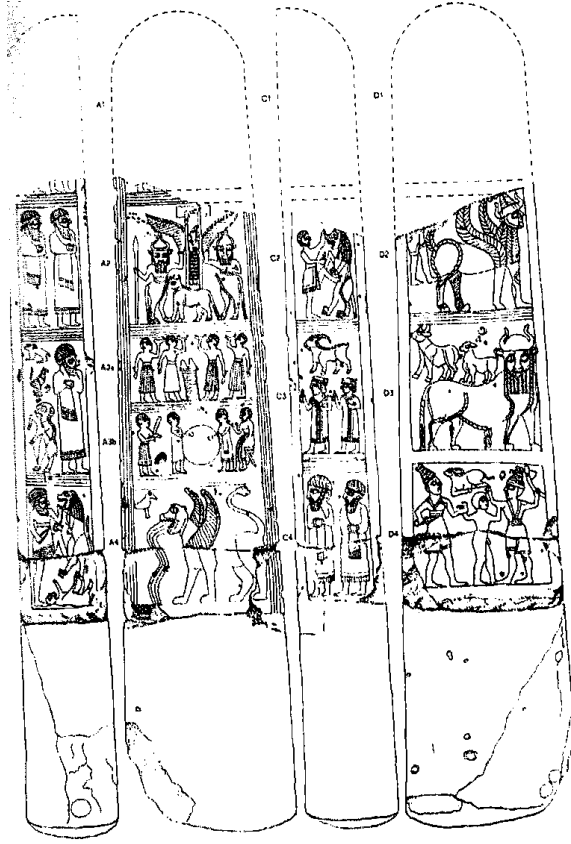 A1
C1
D1
A2
C2
D2
A3a
C3
D3
A3b
A4
C4
D4